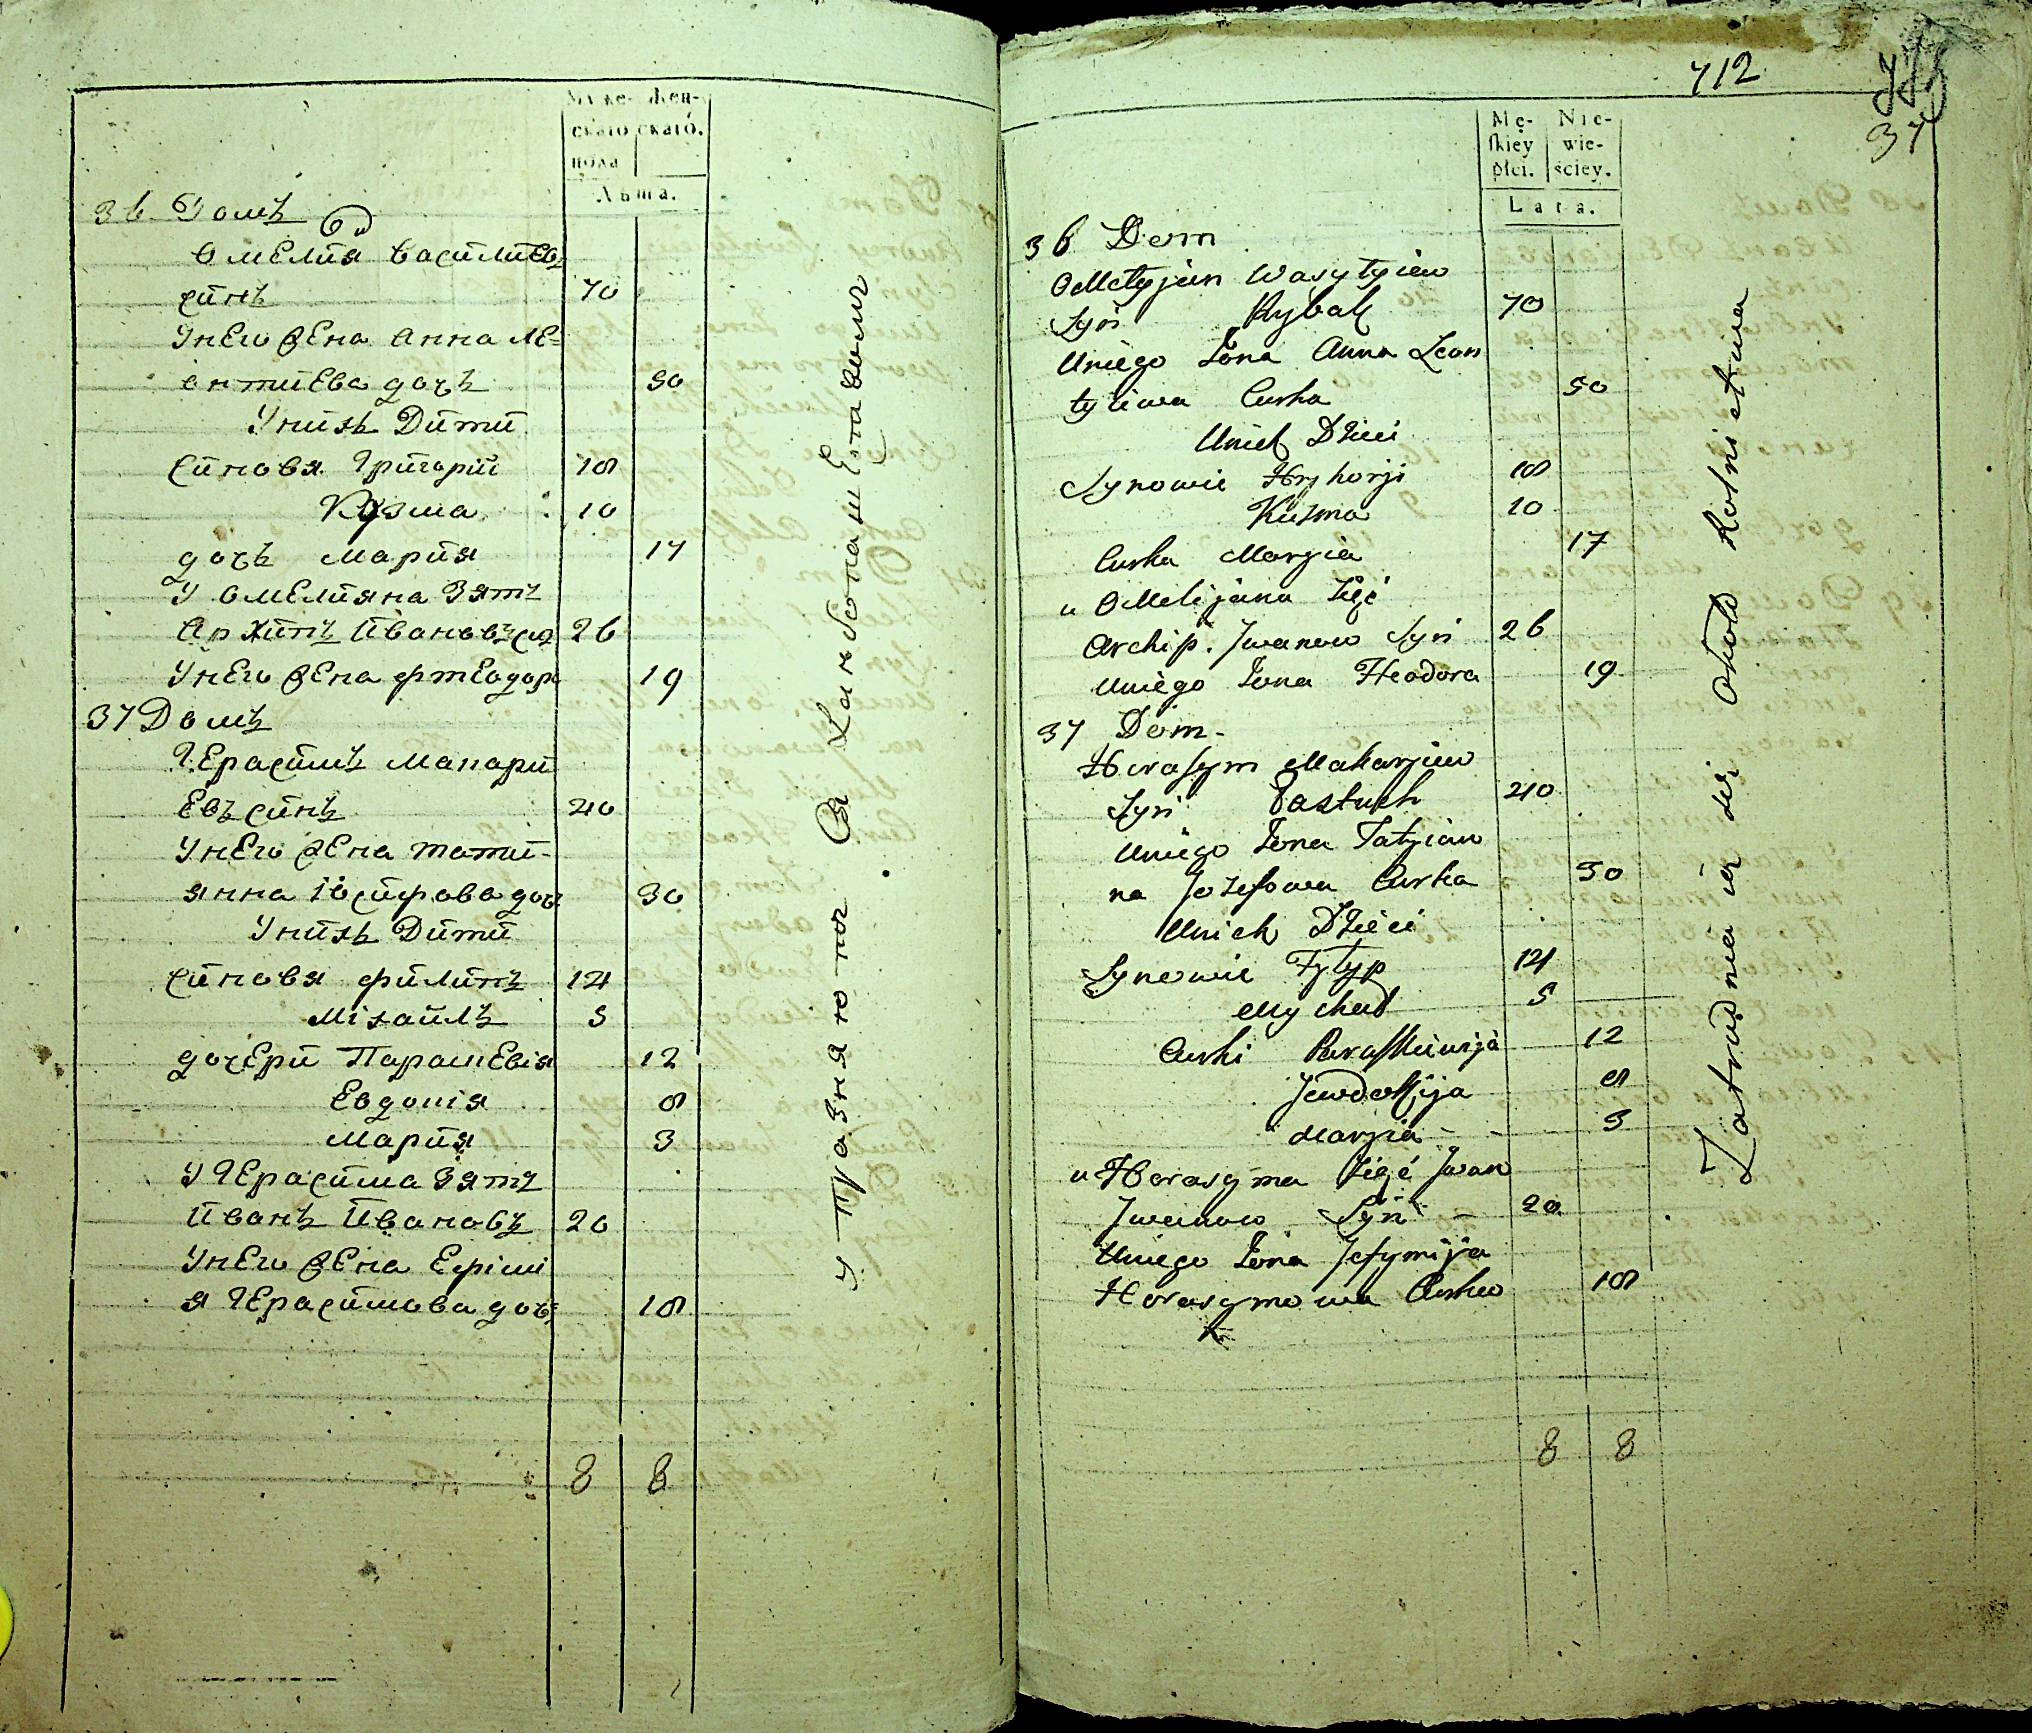 Муже- Жен-
скаго скаго.
пола
Лѣта.
36 Домъ
Омелия василиевъ
синъ 70
Унего жена анна ле-
онтиева дочъ 50
Унихъ Дити
синовя Григорий 18
Кузма 10
дочъ мария 17
У омелияна Зять
Архипъ Ивановъ син 26
Унего жена фтеодора 19
37 Домъ
Герасимъ макари
евъ синъ 40
Унего жена тати-
янна Иосифова доч 30
Унихъ Дити
синовя филипъ 14
Михаилъ 5
дочери Параскевия 12
Евдокія 8
мария 3
У Герасима зять
Иванъ Ивановъ 20
Унего жена Ефими
я Герасимова доч 18
8 8
712
37
Mę- Nie-
skiey wie-
płci. ściey.
Lata.
36 Dom
OMelyjan Wasylyiew
Syn Rybak 70
Uniego Żona Anna Leon
tyiewa Curka 50
Unich Dzieci
Synowie Hryhorji 18
Kuzma 10
Curka Maryia 17
u OMelijana Zięć
Archip. Jwanow Syn 26
Uniego Żona Fteodora 19
37 Dom-
Herasym Makaryiew
Syn Pastuch 40
Uniego Żona Tatyian
na Jozefowa Curka 30
Unich Dzieci
Synowie Fylyp 14
Mychał 5
Curki Paraskiewija 12
Jewdokija 8
Maryia - - 3
u Herasyma Zięć Jwan
Jwanow Syn - 20
Uniego Żona Jefymija
Herasymowa Curka 18
8 8
Zatrudnia ią się Około Rolnictwa